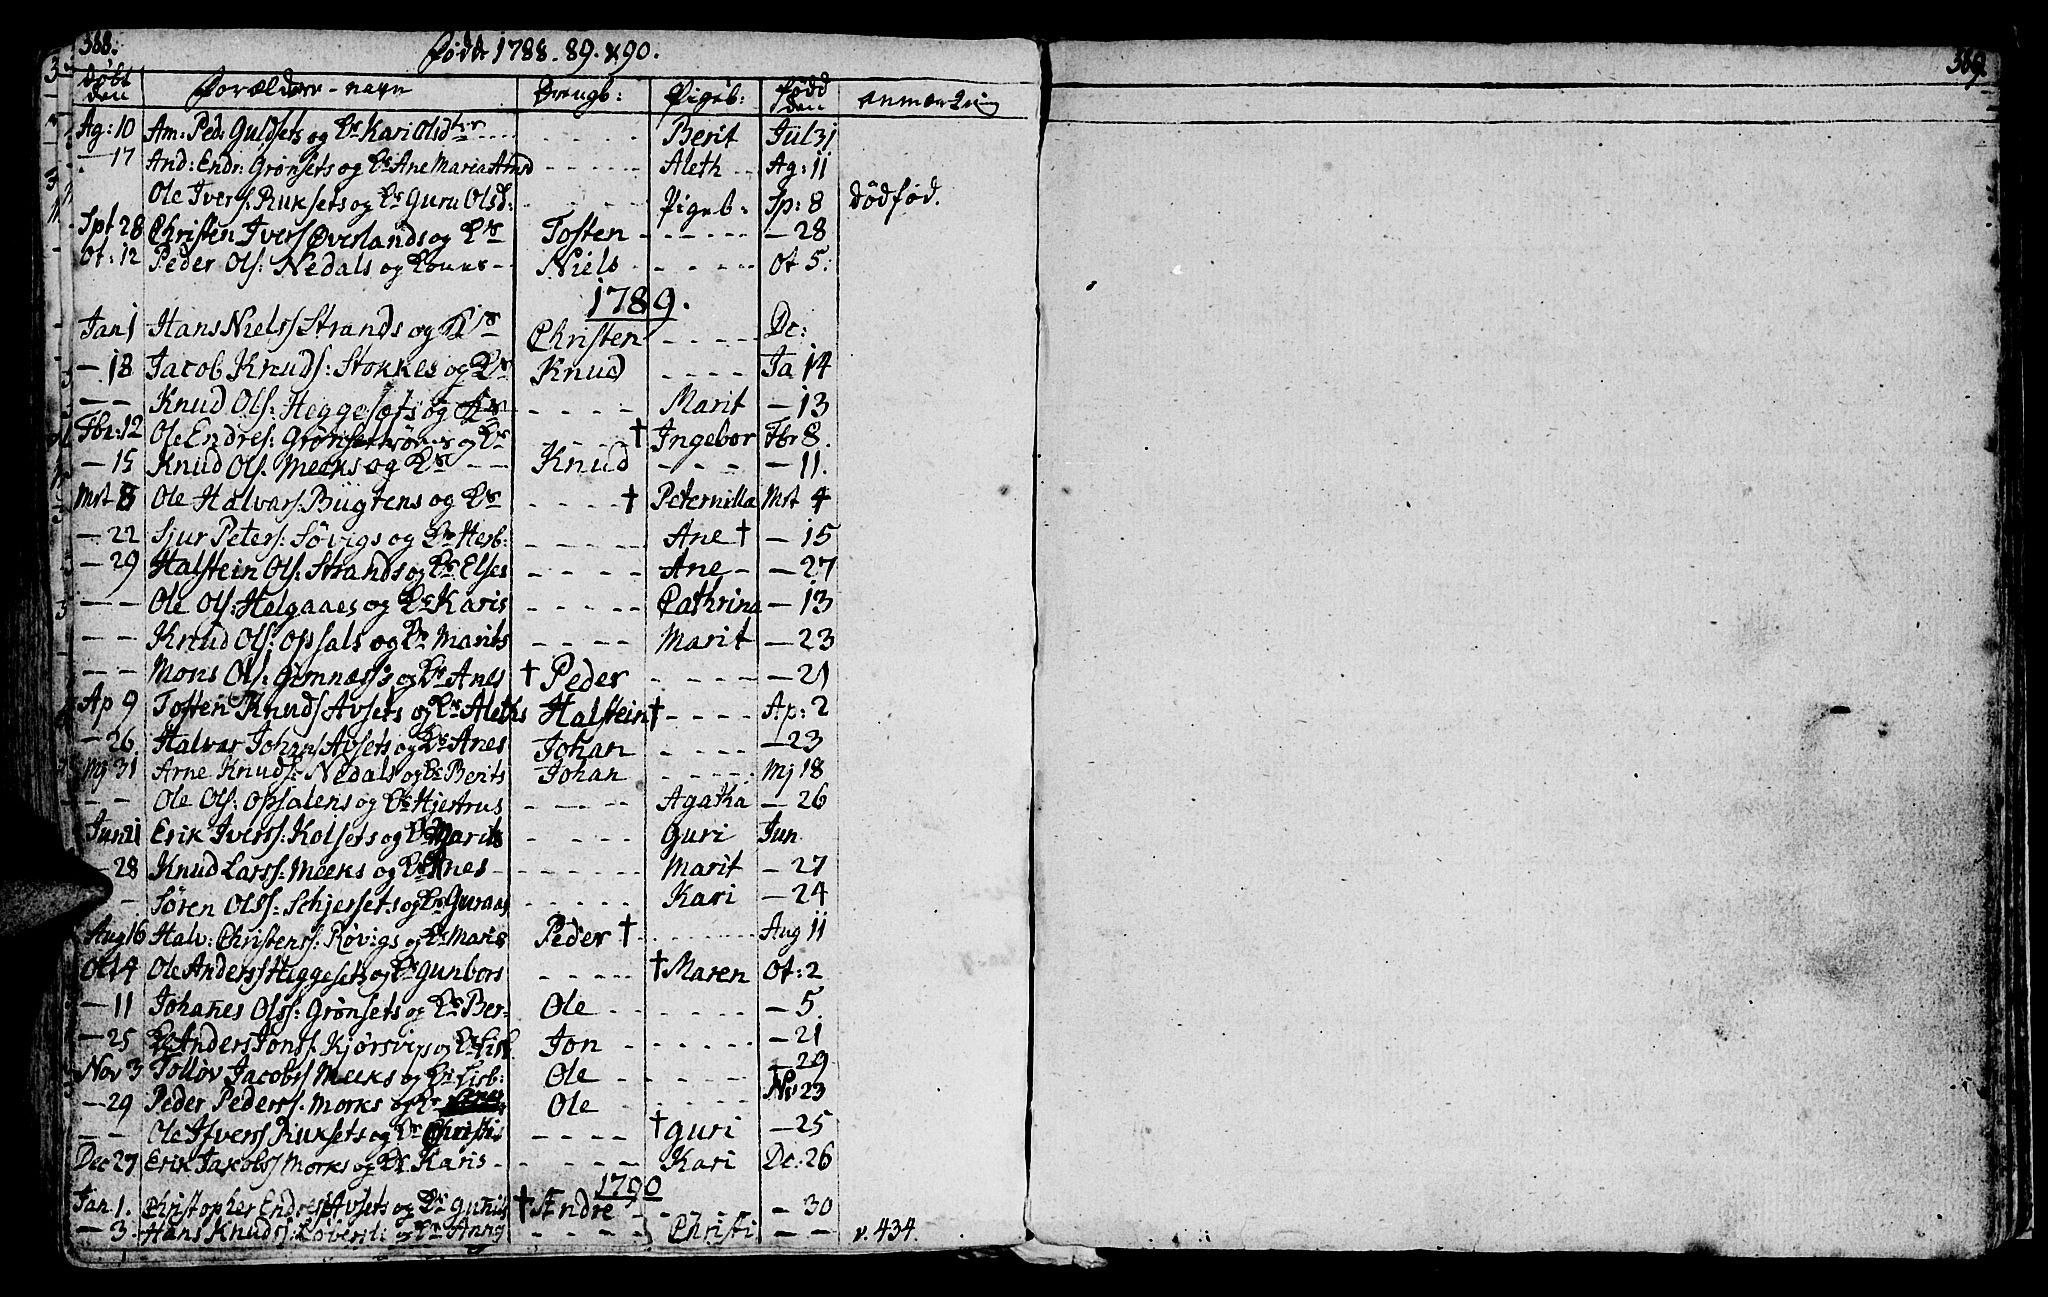 368.
Född 1788. 89. & 90.
Døbt den Forældrenes-navn Drengb: Pigeb: Född den Anmærkn
Ag: 10 Am: Ped: Guldsets og Ks Kari Olsdter Berit Jul 31
— 17 And: Endr: Grønsets og Ks Ane Maria Aleth Ag: 11
Ole Ivers: Ruksets og Ks Guru Olsd: Pigeb: Sp: 8 dødfød.
Spt 28 Christen Ivers Øverlands og Ks Tosten — 28
Ot: 12 Peder Ols: Nedals og Niels Ot 5.
1789.
Jan 1 Hans Niels Strands og Ks Christen Dc:
— 18 Jacob Knuds: Stokkes og Ks Knud Ja 14
— — Knud Ols: Heggesæts og Ks Marit — 13
Fbr: 12 Ole Endres: og Ks † Ingebor Fbr 8.
— 15 Knud Ols: Meeks og Ks Knud — 11.
Mrt 8 Ole Halvars: Bügtens og Ks † Peternilla Mrt 4
— 22 Sjur Peters: Søvigs og Ks Herb: Ane † — 15
— 29 Halstein Ols: Strands og Ks Elses Ane — 27
— — Ole Ols: Helgaaes og Ks Karis Cathrina — 13
— — Knud Ols: Opsals og Ks Marits Marit — 23
— — Mons Ols: Gimnæs's og Ks Anes † Peder — 21
Ap 9 Tosten Knuds Avsets og Ks Aleths Halstein † Ap: 2
— 26. Halvar Johans Avsets og Ks Anes Johan — 23
Mj 31 Arne Knuds: Nedals og Ks Berits Johan Mj 18
— — Ole Ols: Opsalens og Ks Hjertrus Agatha — 26
Jun 21 Erik Ivers: Kolsets og Ks Marits Guri Jun
— 28 Knud Lars: Meeks og Ks Anes Marit — 27
— Søren Ols: Schjersets og Ks Guraas Kari — 24
Aug 16 Halv: Christens: Røvigs og Ks Maris Peder † Aug 11
Ot 4 Ole Anders Heggesets og Ks Gunbors † Maren Ot: 2
— 11 Johanes Ols: Grønsets og Ks Ber- Ole — 5.
— 25 Anders Jons: Kjørsvigs og Ks Jon — 21
Nov 3 Tolløv Jacobs Meeks og Ks Lisb: Ole — 29
— 29 Peder Peders: Morks og Ks Ole Nv 23
— — Ole Ivers Ruksets og Ks Christis † Guri — 25
Dec 27 Erik Jakobs Morks og Ks Karis Kari Dc: 26
1790
Jan 1. Christopher Endres Avsets og Ks Gunils † Andre — 30
— 3. Hans Knuds: Løversti og Ks Anny Christi — — v. 434.
369.